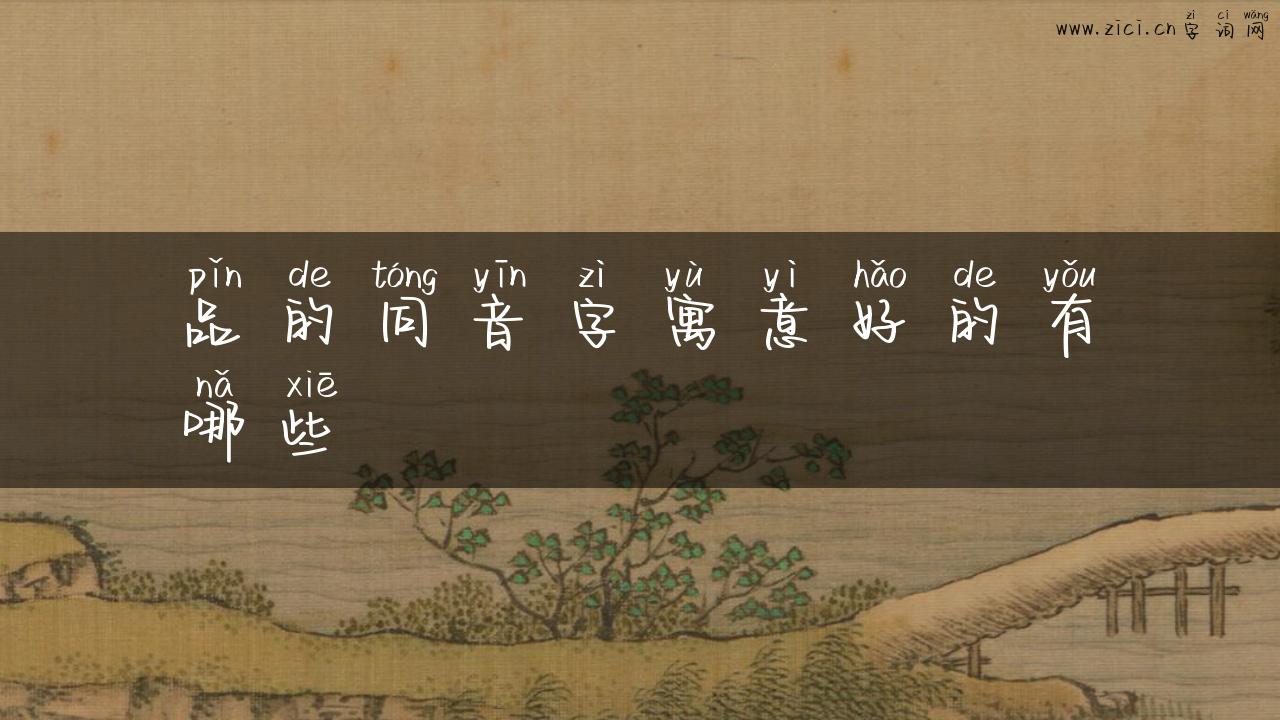 zì cí wǎng
www.zici.cn 字词网
pǐn de tóng yīn zì yù yì hǎo de yǒu
品的同音字寓意好的有
nǎ xiē
哪些